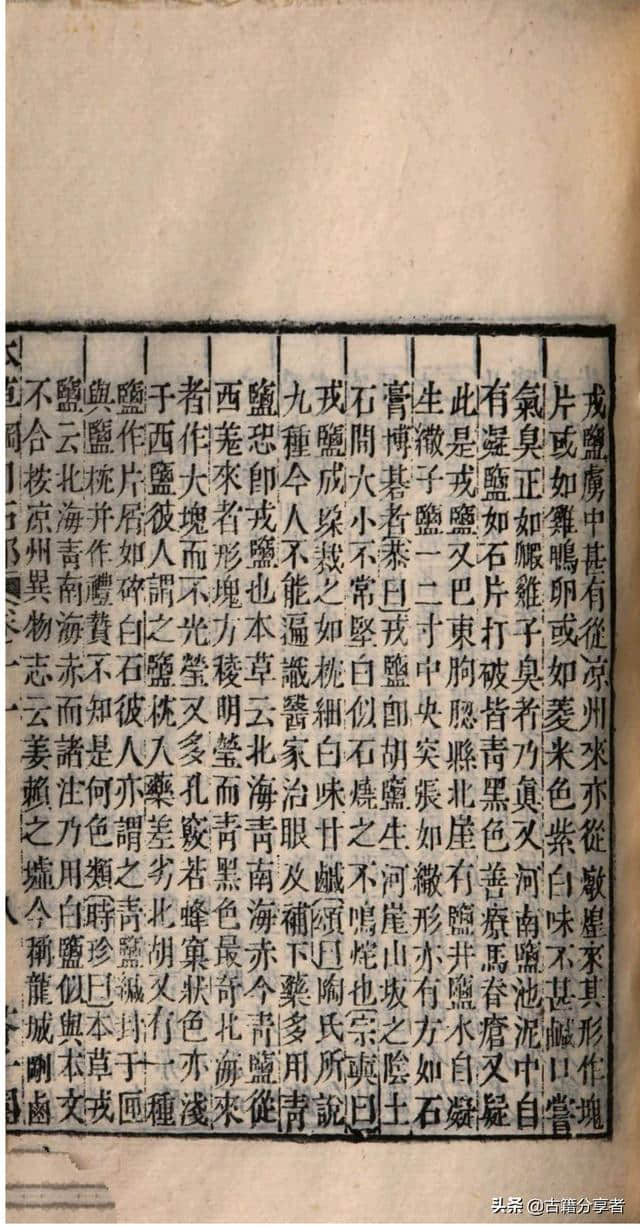 戎鹽虜中甚有從凉州來亦從墩煌來其形作塊
片或如雞鴨卵或如菱米色紫白味不甚鹹口嘗
氣臭正如毈雞子臭者乃眞又河南鹽池泥中自
有凝鹽如石片打破皆靑黑色善療馬脊瘡又疑
此是戎鹽又巴東朐䏰縣北崖有鹽井鹽水自凝
生繖子鹽一二寸中央突張如繖形亦有方如石
膏博碁者恭曰戎鹽卽胡鹽生河崖山坂之陰土
石間大小不常堅白似石燒之不鳴烢也宗奭曰
戎鹽成垛裁之如枕細白味甘鹹頌曰陶氏所說
九種今人不能遍識醫家治眼及補下藥多用靑
鹽恐卽戎鹽也本草云北海靑南海赤今靑鹽從
西羌來者形塊方稜明瑩而靑黑色最奇北海來
者作大塊而不光瑩又多孔竅若蜂窠狀色亦淺
于西鹽彼人謂之鹽枕入藥差劣北胡又有一種
鹽作片屑如碎白石彼人亦謂之靑鹽緘封于匣
與鹽枕并作禮贄不知是何色類時珍曰本草戎
鹽云北海靑南海赤而諸注乃用白鹽似與本文
不合按凉州異物志云姜賴之墟今稱龍城剛鹵
本草綱目石部 卷十一 八
头条 @古籍分享者